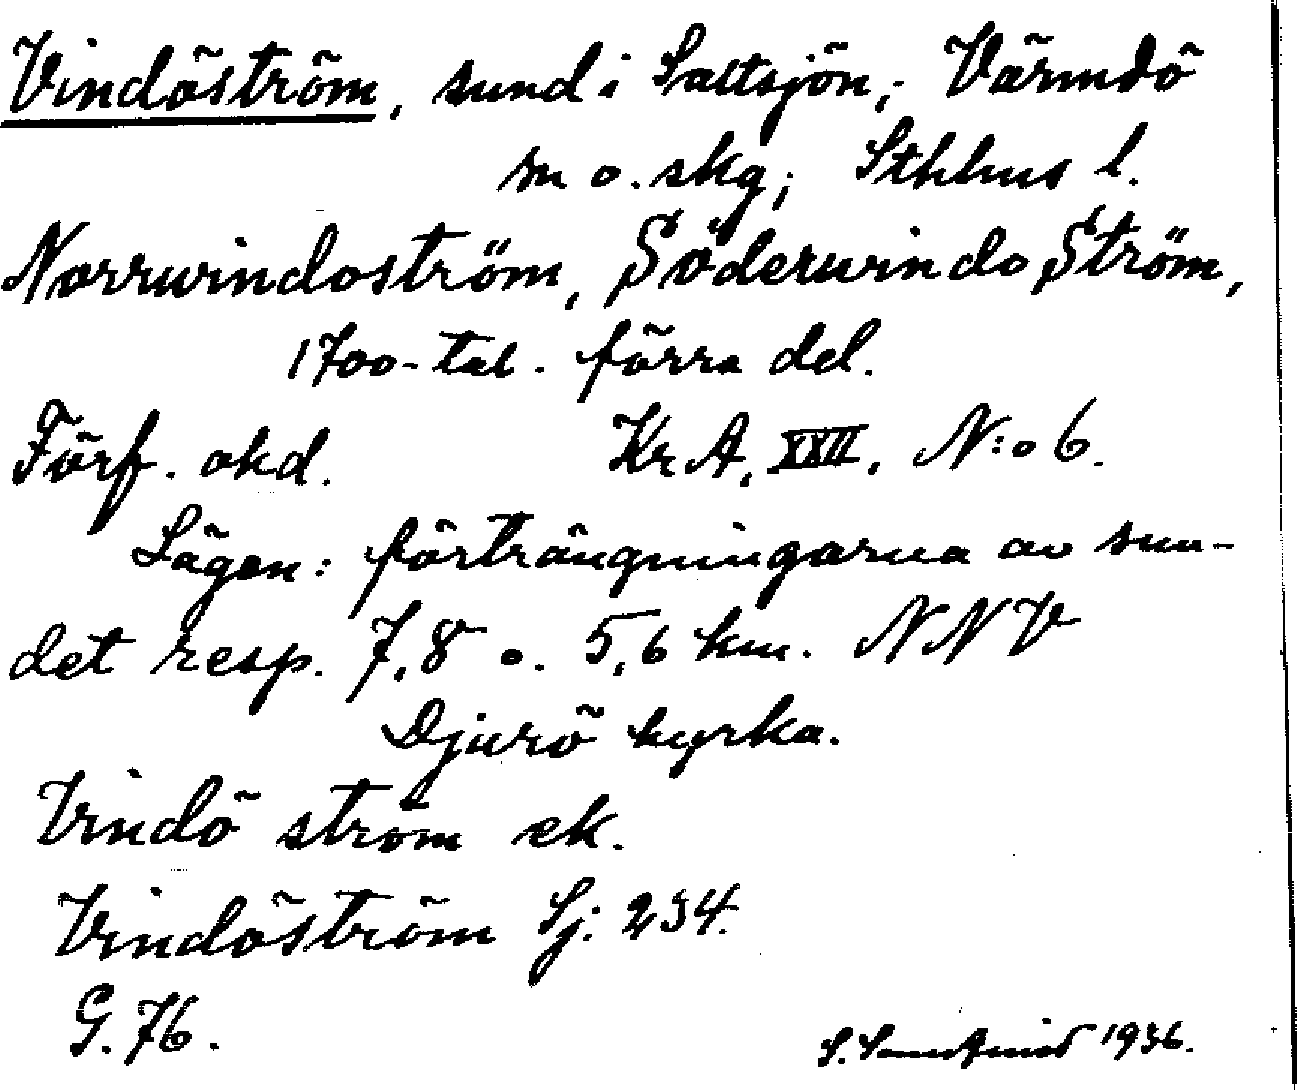 Vindöström, sund i Saltsjön, Värmdö
sn o. skg, Sthlms l.
Norrwindoström, Söderwindo Ström,
1700-tal. förra del.
Förf. okd. Kr A, XXII, N:o 6.
Lägen: förträngningarna av sun-
det resp. 7,8 o. 5,6 km. NNV
Djurö kyrka.
Vindö ström ek.
Vindöström Sj: 234.
G. 76.
S. 1936.